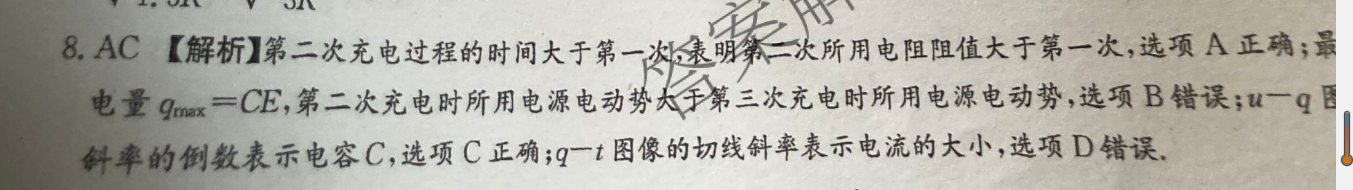 8. AC 【解析】第二次充电过程的时间大于第一次,表明第二次所用电阻阻值大于第一次,选项 A 正确;最
电量 qmax=CE,第二次充电时所用电源电动势大于第三次充电时所用电源电动势,选项 B 错误;u-q 图
斜率的倒数表示电容C,选项 C 正确;q-t 图像的切线斜率表示电流的大小,选项 D 错误.